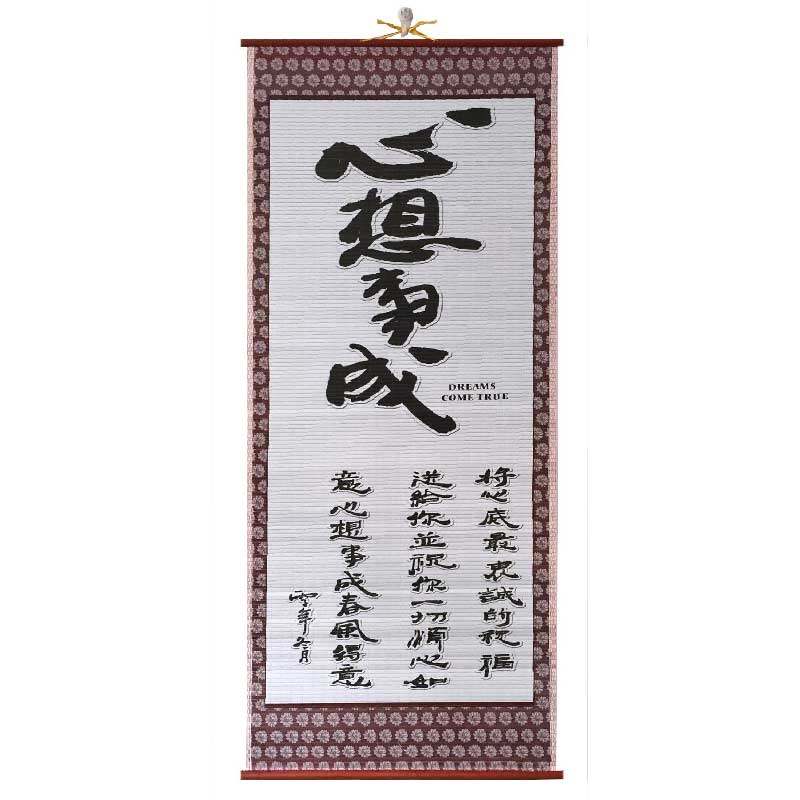 心想事成
DREAMS
COME TRUE
將心底最衷誠的祝福
送給你並祝你一切順心如
意心想事成春風得意
零年冬月